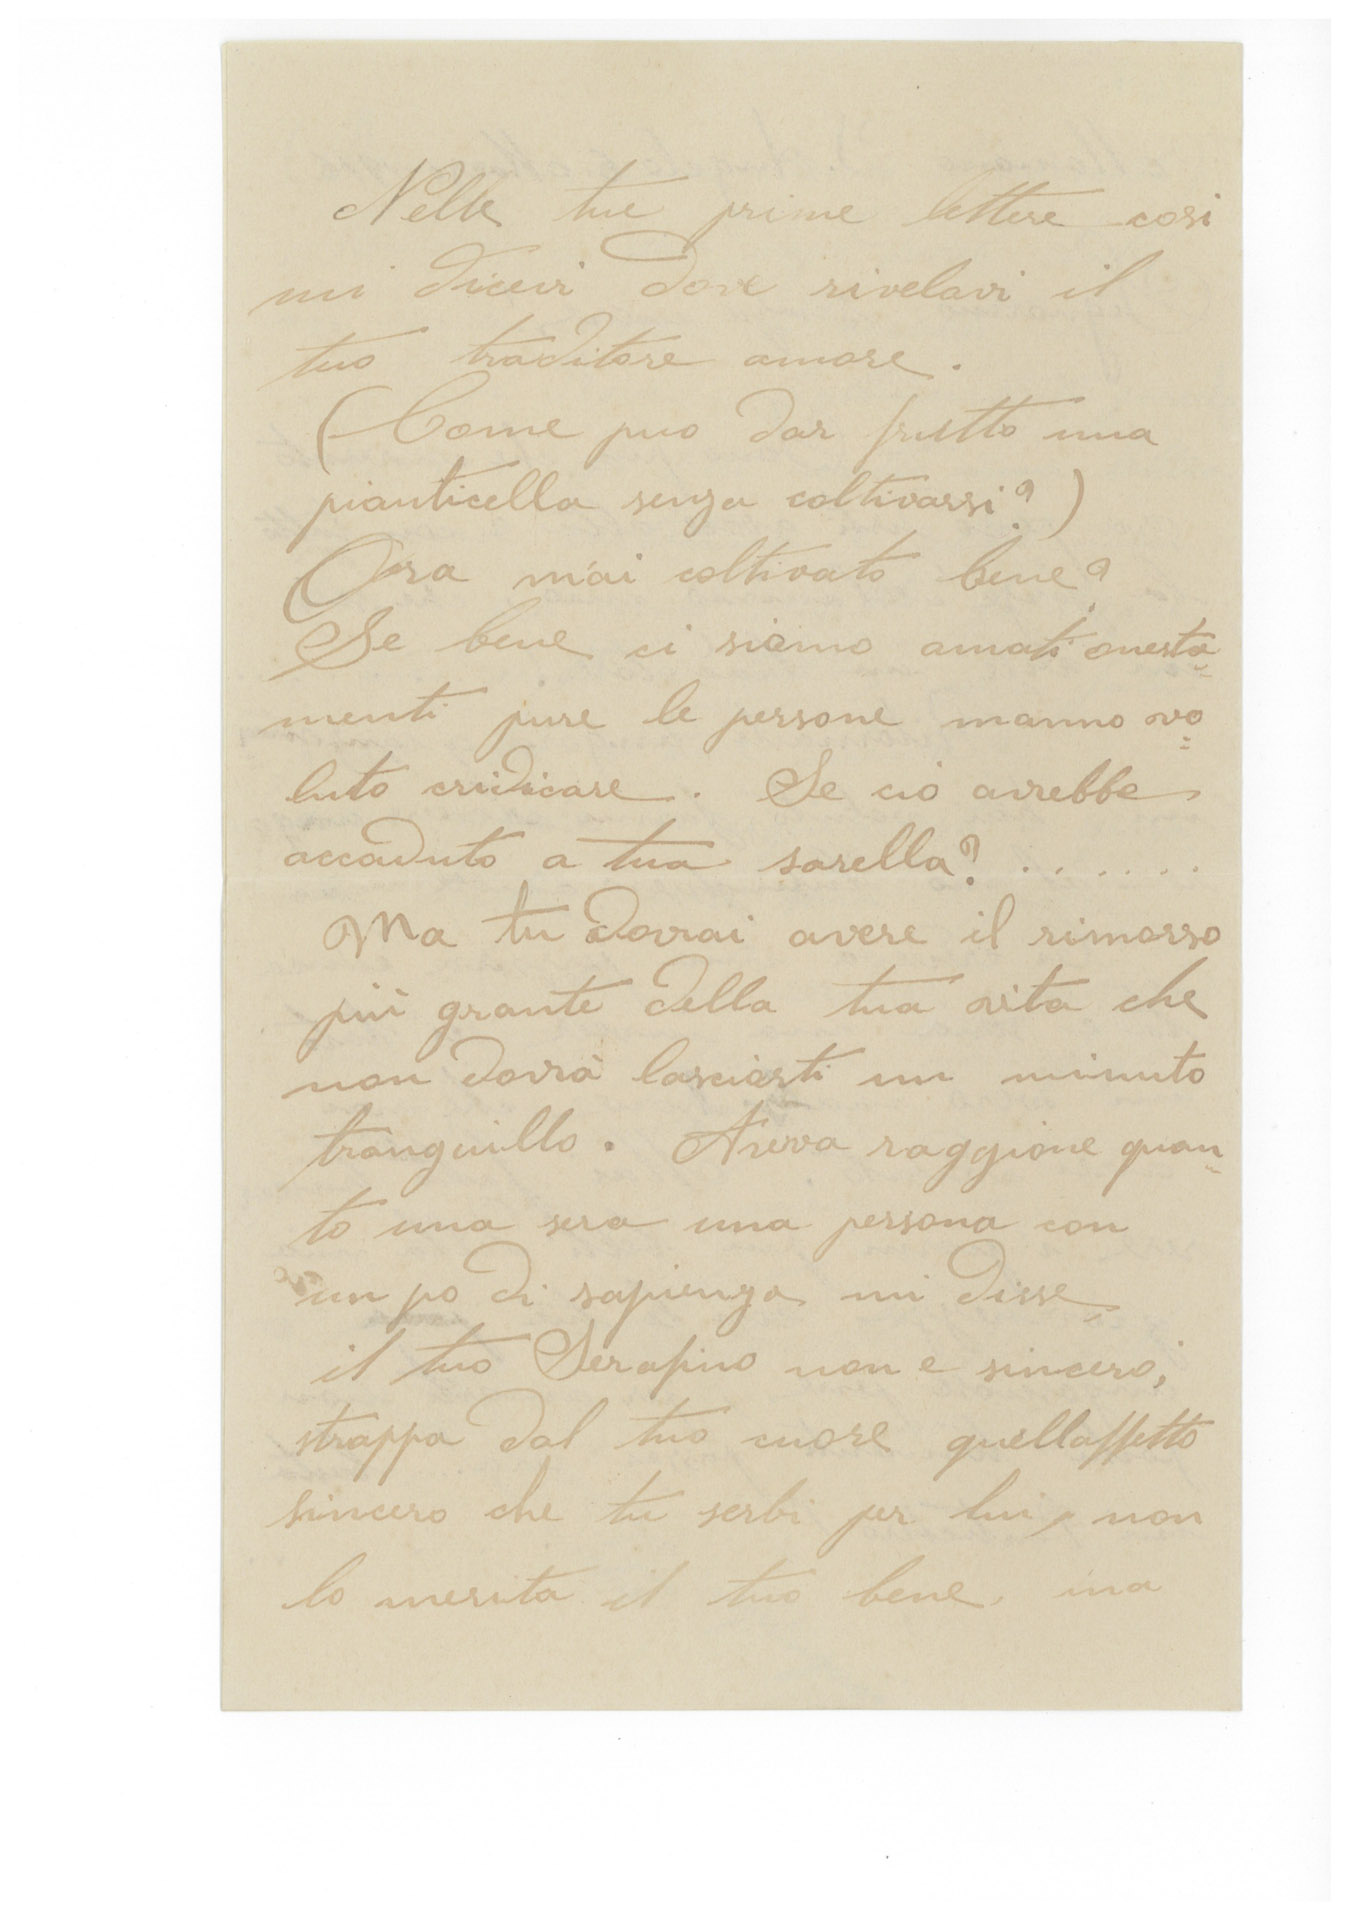 Nelle tue prime lettere cosi
mi dicevi dove rivelavi il
tuo traditore amore.
(Come puo dar frutto una
pianticella senza coltivarsi?)
Ora m'ai coltivato bene?
Se bene ci siamo amati onesta=
menti pure le persone manno vo=
luto cridicare. Se ciò avrebbe
accaduto a tua sorella? .......
Ma tu dovrai avere il rimorso
più grante della tua vita che
non dovrà lasciarti un minuto
tranquillo. Aveva raggione quan=
to una sera una persona con
un po di sapienza mi disse,
il tuo Serafino non e sincero;
strappa dal tuo cuore quellaffetto
sincero che tu serbi per lui, non
lo merita il tuo bene, ma